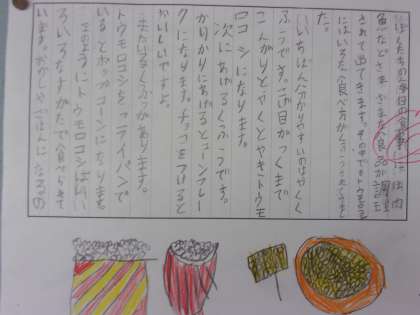 ぼくたちの毎日の食事には肉
魚などさまざまな食品が調理
されて出てきます。その中でトウモロコシ
にはいろんな食べ方がある
た。
いちばん分かりやすいのはやくく
ふうです。こげ目がつくまで
こんがりとやくとやきトウモ
ロコシになります。
次にあげるくふうです。
かりかりにあげるとコーンフレー
クになります。チップをつけると
おいしいですよ。
またいるくふうがあります。
トウモロコシをフライパンで
いるとポップコーンになります。
このようにトウモロコシはいろ
いろなすがたで食べられて
います。おかしやごはんになるの